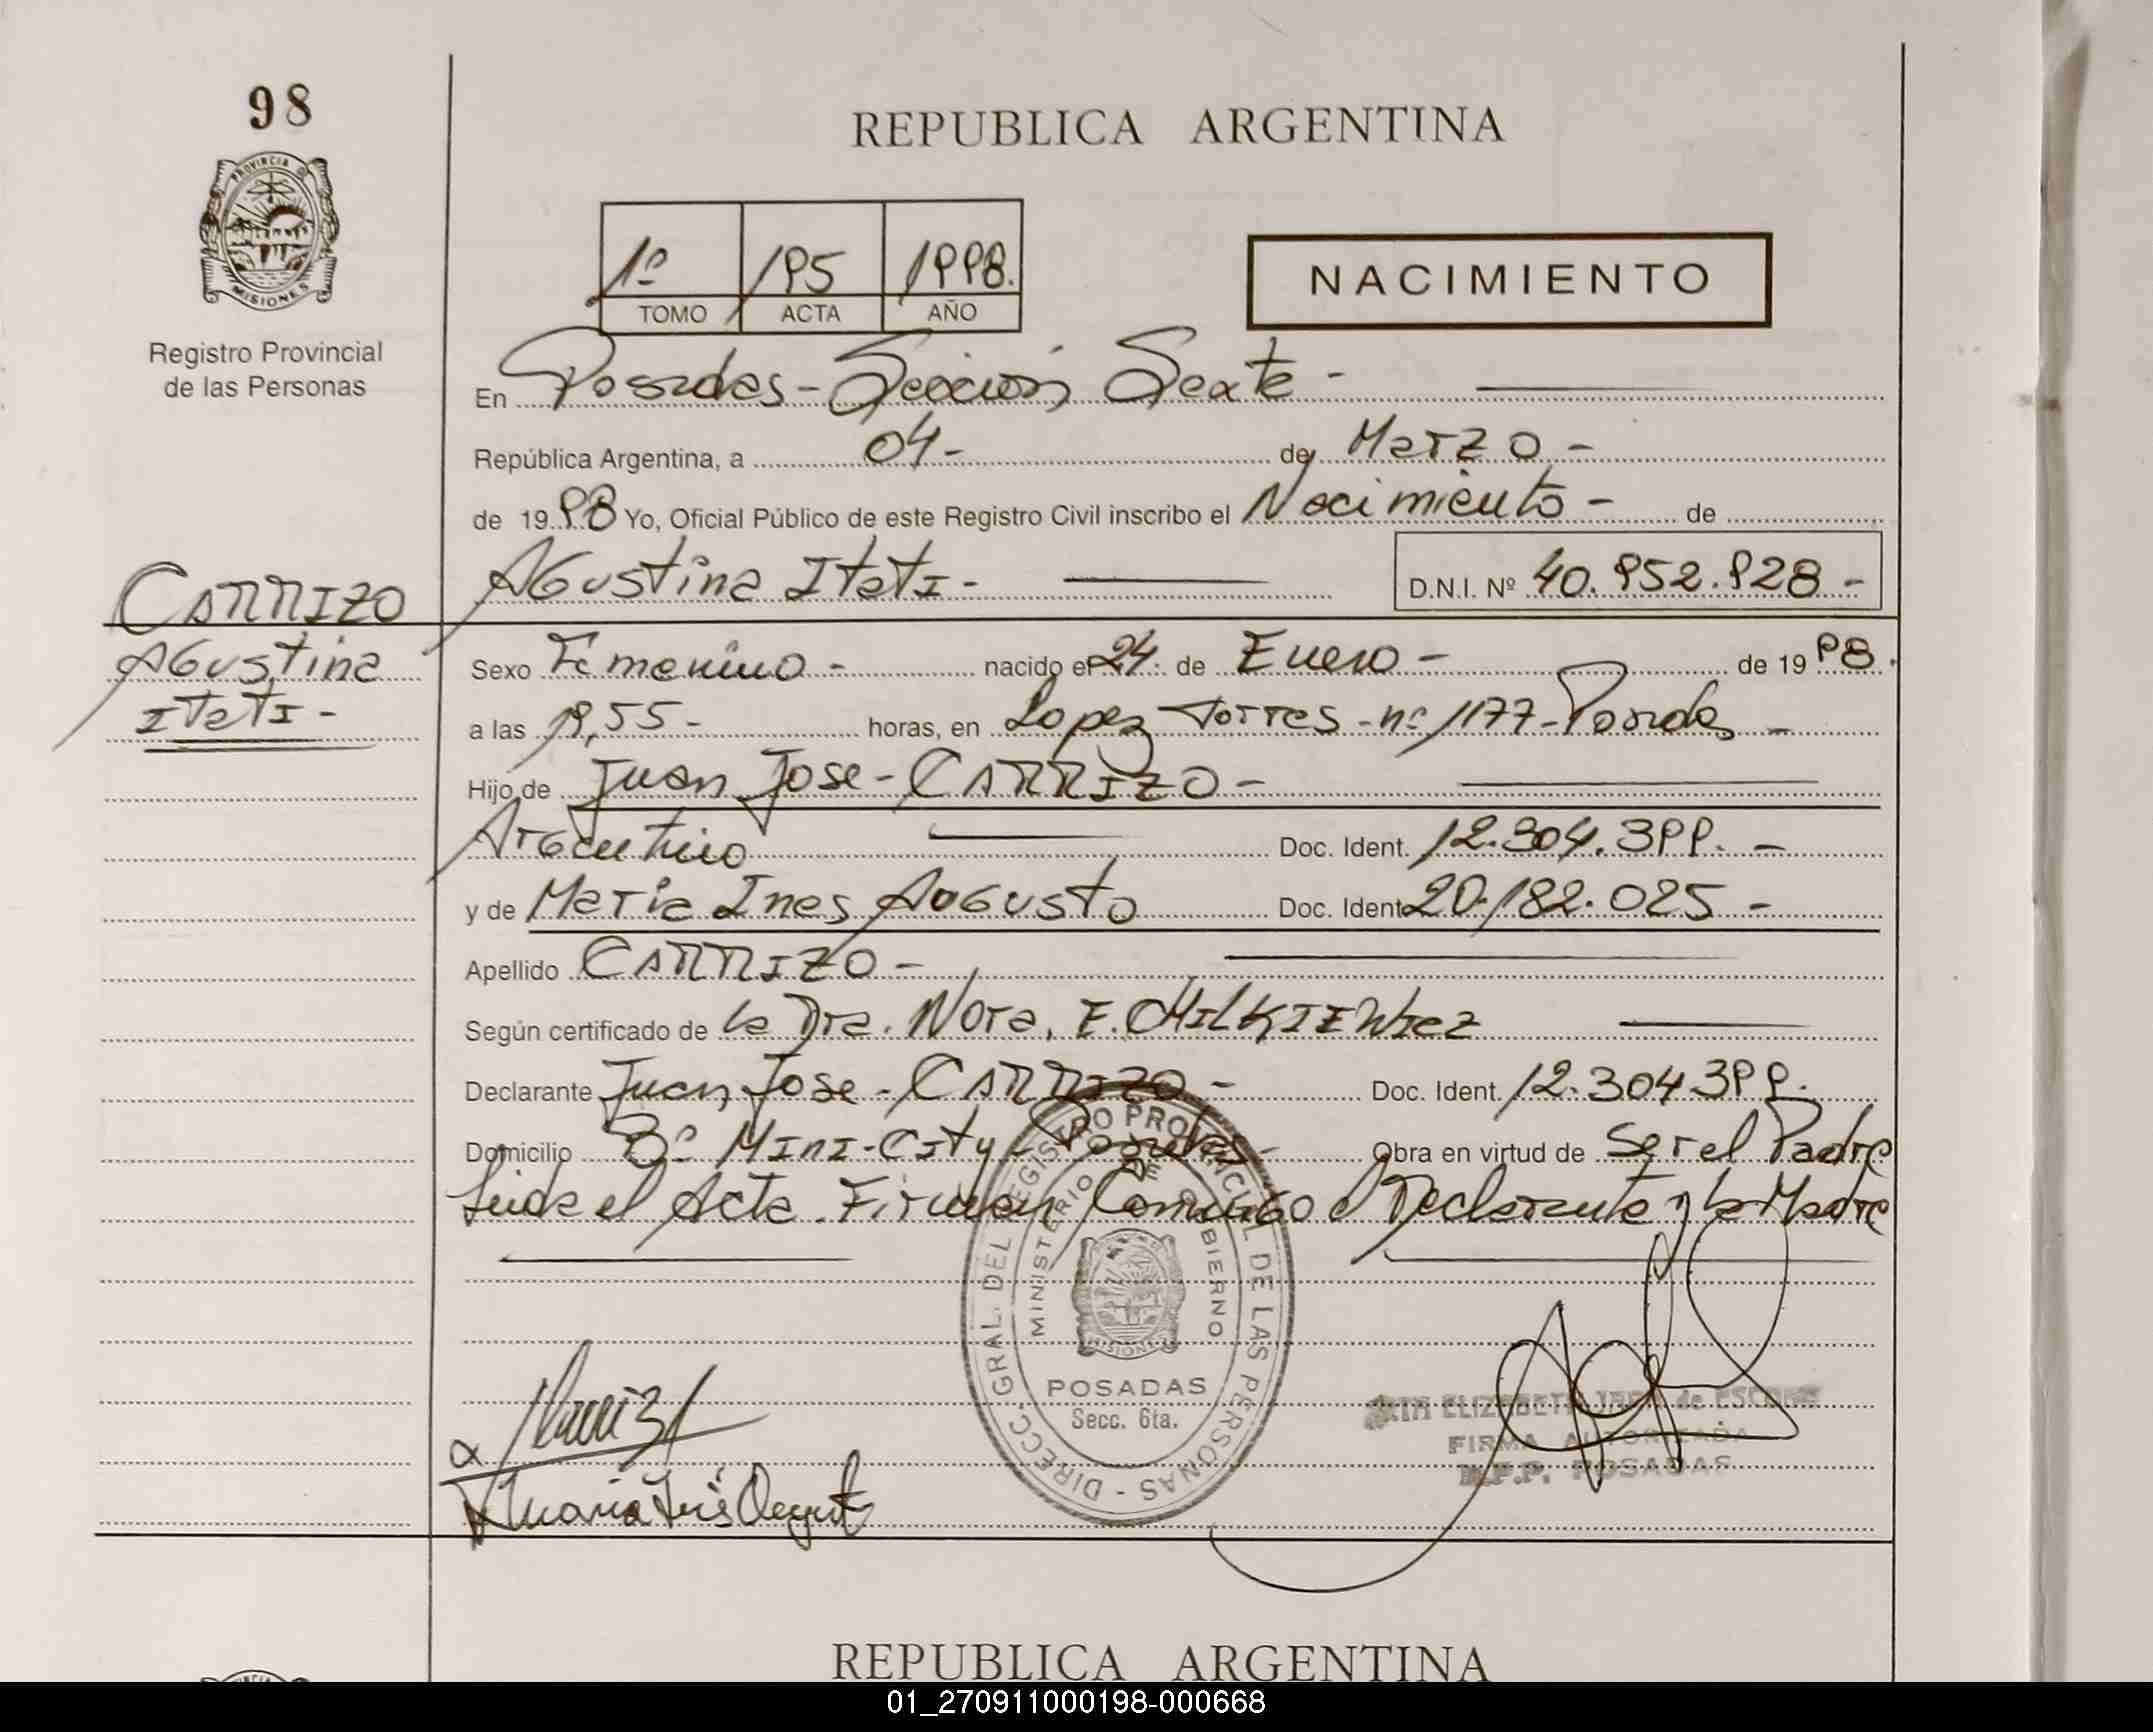 98
REPUBLICA ARGENTINA
PROVINCIA DE
MISIONES
Registro Provincial
de las Personas
1º 195 1998.
TOMO ACTA AÑO
NACIMIENTO
En Posadas - Sección Sexta -
República Argentina, a 04 - de Marzo -
de 1998 Yo, Oficial Público de este Registro Civil inscribo el Nacimiento - de
Agustina Itati - D.N.I. Nº 40.952.928 -
CARRIZO
Agustina
Itati -
Sexo Femenino - nacido el 24 de Enero - de 1998.
a las 19,55 - horas, en Lopez Torres - nº 1177 - Posadas -
Hijo de Juan Jose - CARRIZO -
Argentino Doc. Ident. 12.304.399. -
y de Maria Ines Augusto Doc. Ident. 20.182.025 -
Apellido CARRIZO -
Según certificado de la Dra. Nora, E. CHILKIEWICZ
Declarante Juan Jose - CARRIZO - Doc. Ident. 12.304399.
Domicilio Bº Mini-City Posadas - Obra en virtud de Ser el Padre
Leida el Acta. Firman Conmigo el Declarante y la Madre
DIRECC. GRAL. DEL REGISTRO PROVINCIAL DE LAS PERSONAS -
MINISTERIO DE GOBIERNO
MISIONES
POSADAS
Secc. 6ta.
ELIZABETH de
FIRMA AUTORIZADA
R.P.P. POSADAS
Carrizo
Maria Inés Augusto
REPUBLICA ARGENTINA
01_270911000198-000668